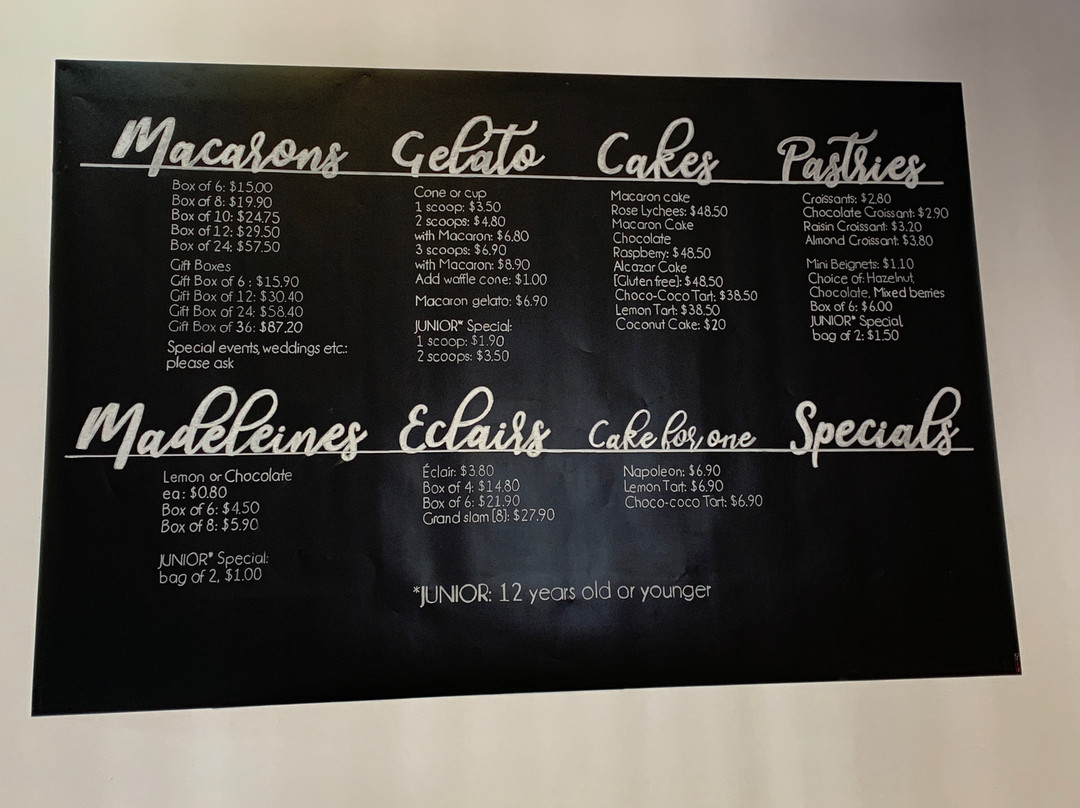 Macarons
Box of 6: $15.00
Box of 8: $19.90
Box of 10: $24.75
Box of 12: $29.50
Box of 24: $57.50
Gift Boxes
Gift Box of 6 : $15.90
Gift Box of 12: $30.40
Gift Box of 24: $58.40
Gift Box of 36: $87.20
Special events, weddings etc.:
please ask
Gelato
Cone or cup
1 scoop: $3.50
2 scoops: $4.80
with Macaron: $6.80
3 scoops: $6.90
with Macaron: $8.90
Add waffle cone: $1.00
Macaron gelato: $6.90
JUNIOR* Special:
1 scoop: $1.90
2 scoops: $3.50
Cakes
Macaron cake
Rose Lychees: $48.50
Macaron Cake
Chocolate
Raspberry: $48.50
Alcazar Cake
[Gluten free]: $48.50
Choco-Coco Tart: $38.50
Lemon Tart: $38.50
Coconut Cake: $20
Pastries
Croissants: $2.80
Chocolate Croissant: $2.90
Raisin Croissant: $3.20
Almond Croissant: $3.80
Mini Beignets: $1.10
Choice of: Hazelnut,
Chocolate, Mixed berries
Box of 6: $6.00
JUNIOR* Special,
bag of 2: $1.50
Madeleines
Lemon or Chocolate
ea: $0.80
Box of 6: $4.50
Box of 8: $5.90
JUNIOR* Special:
bag of 2, $1.00
Eclairs
Éclair: $3.80
Box of 4: $14.80
Box of 6: $21.90
Grand slam [8]: $27.90
Cake for one
Napoleon: $6.90
Lemon Tart: $6.90
Choco-coco Tart: $6.90
Specials
*JUNIOR: 12 years old or younger